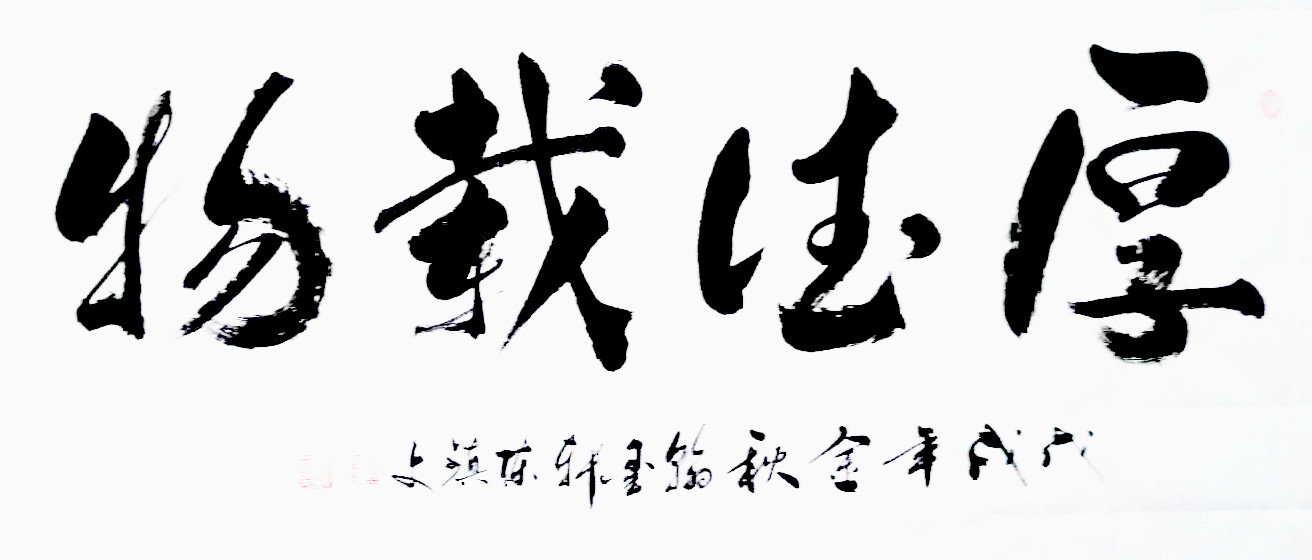 厚德载物
戊戌年金秋翰墨轩陈滇文